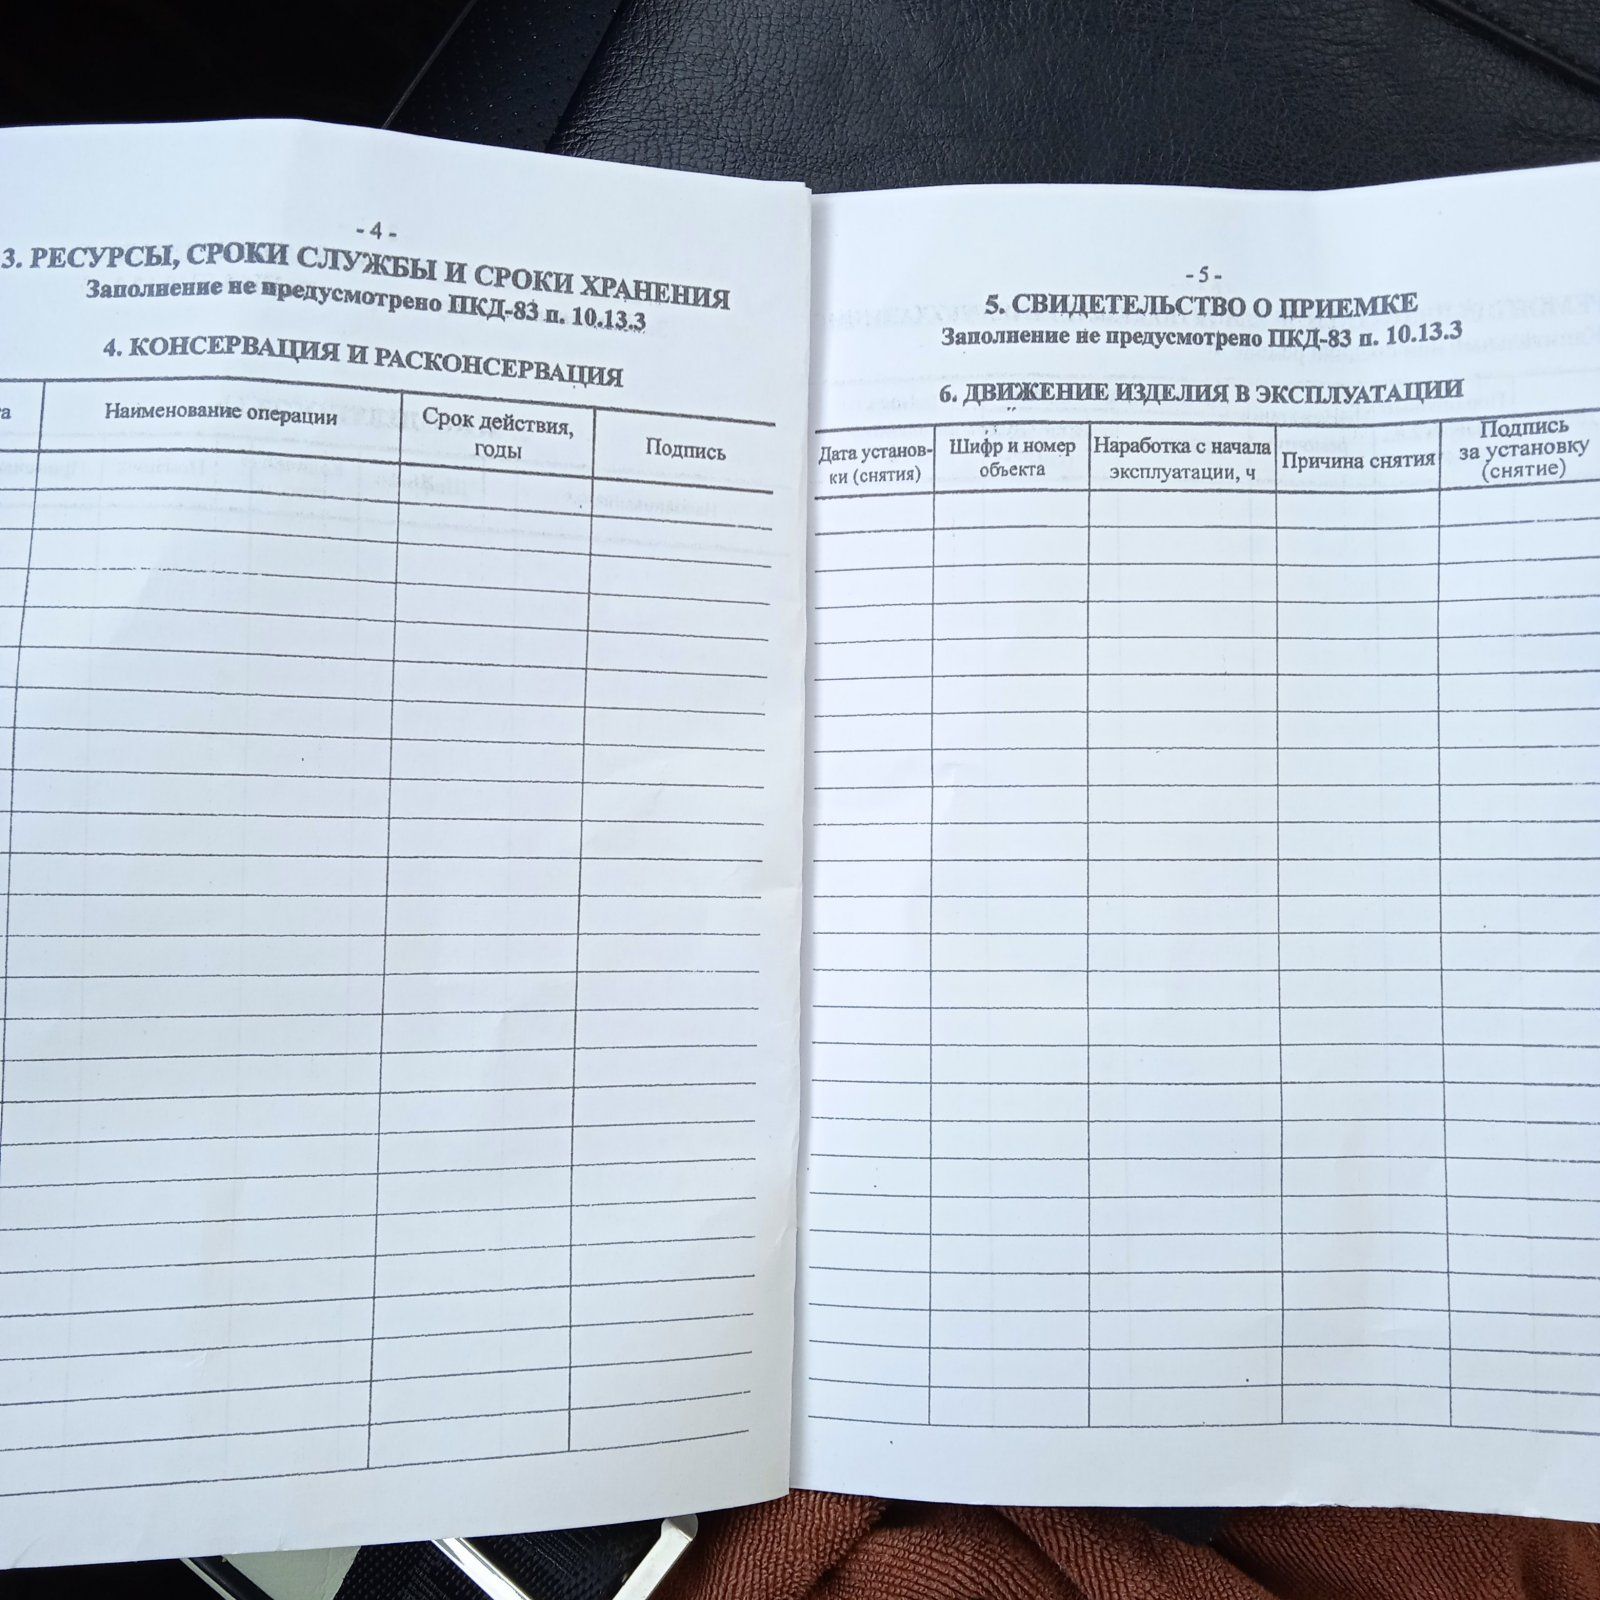 - 4 -
3. РЕСУРСЫ, СРОКИ СЛУЖБЫ И СРОКИ ХРАНЕНИЯ
Заполнение не предусмотрено ПКД-83 п. 10.13.3
4. КОНСЕРВАЦИЯ И РАСКОНСЕРВАЦИЯ
та
Наименование операции
Срок действия,
годы
Подпись
- 5 -
5. СВИДЕТЕЛЬСТВО О ПРИЕМКЕ
Заполнение не предусмотрено ПКД-83 п. 10.13.3
6. ДВИЖЕНИЕ ИЗДЕЛИЯ В ЭКСПЛУАТАЦИИ
Дата установ-
ки (снятия)
Шифр и номер
объекта
Наработка с начала
эксплуатации, ч
Причина снятия
Подпись
за установку
(снятие)